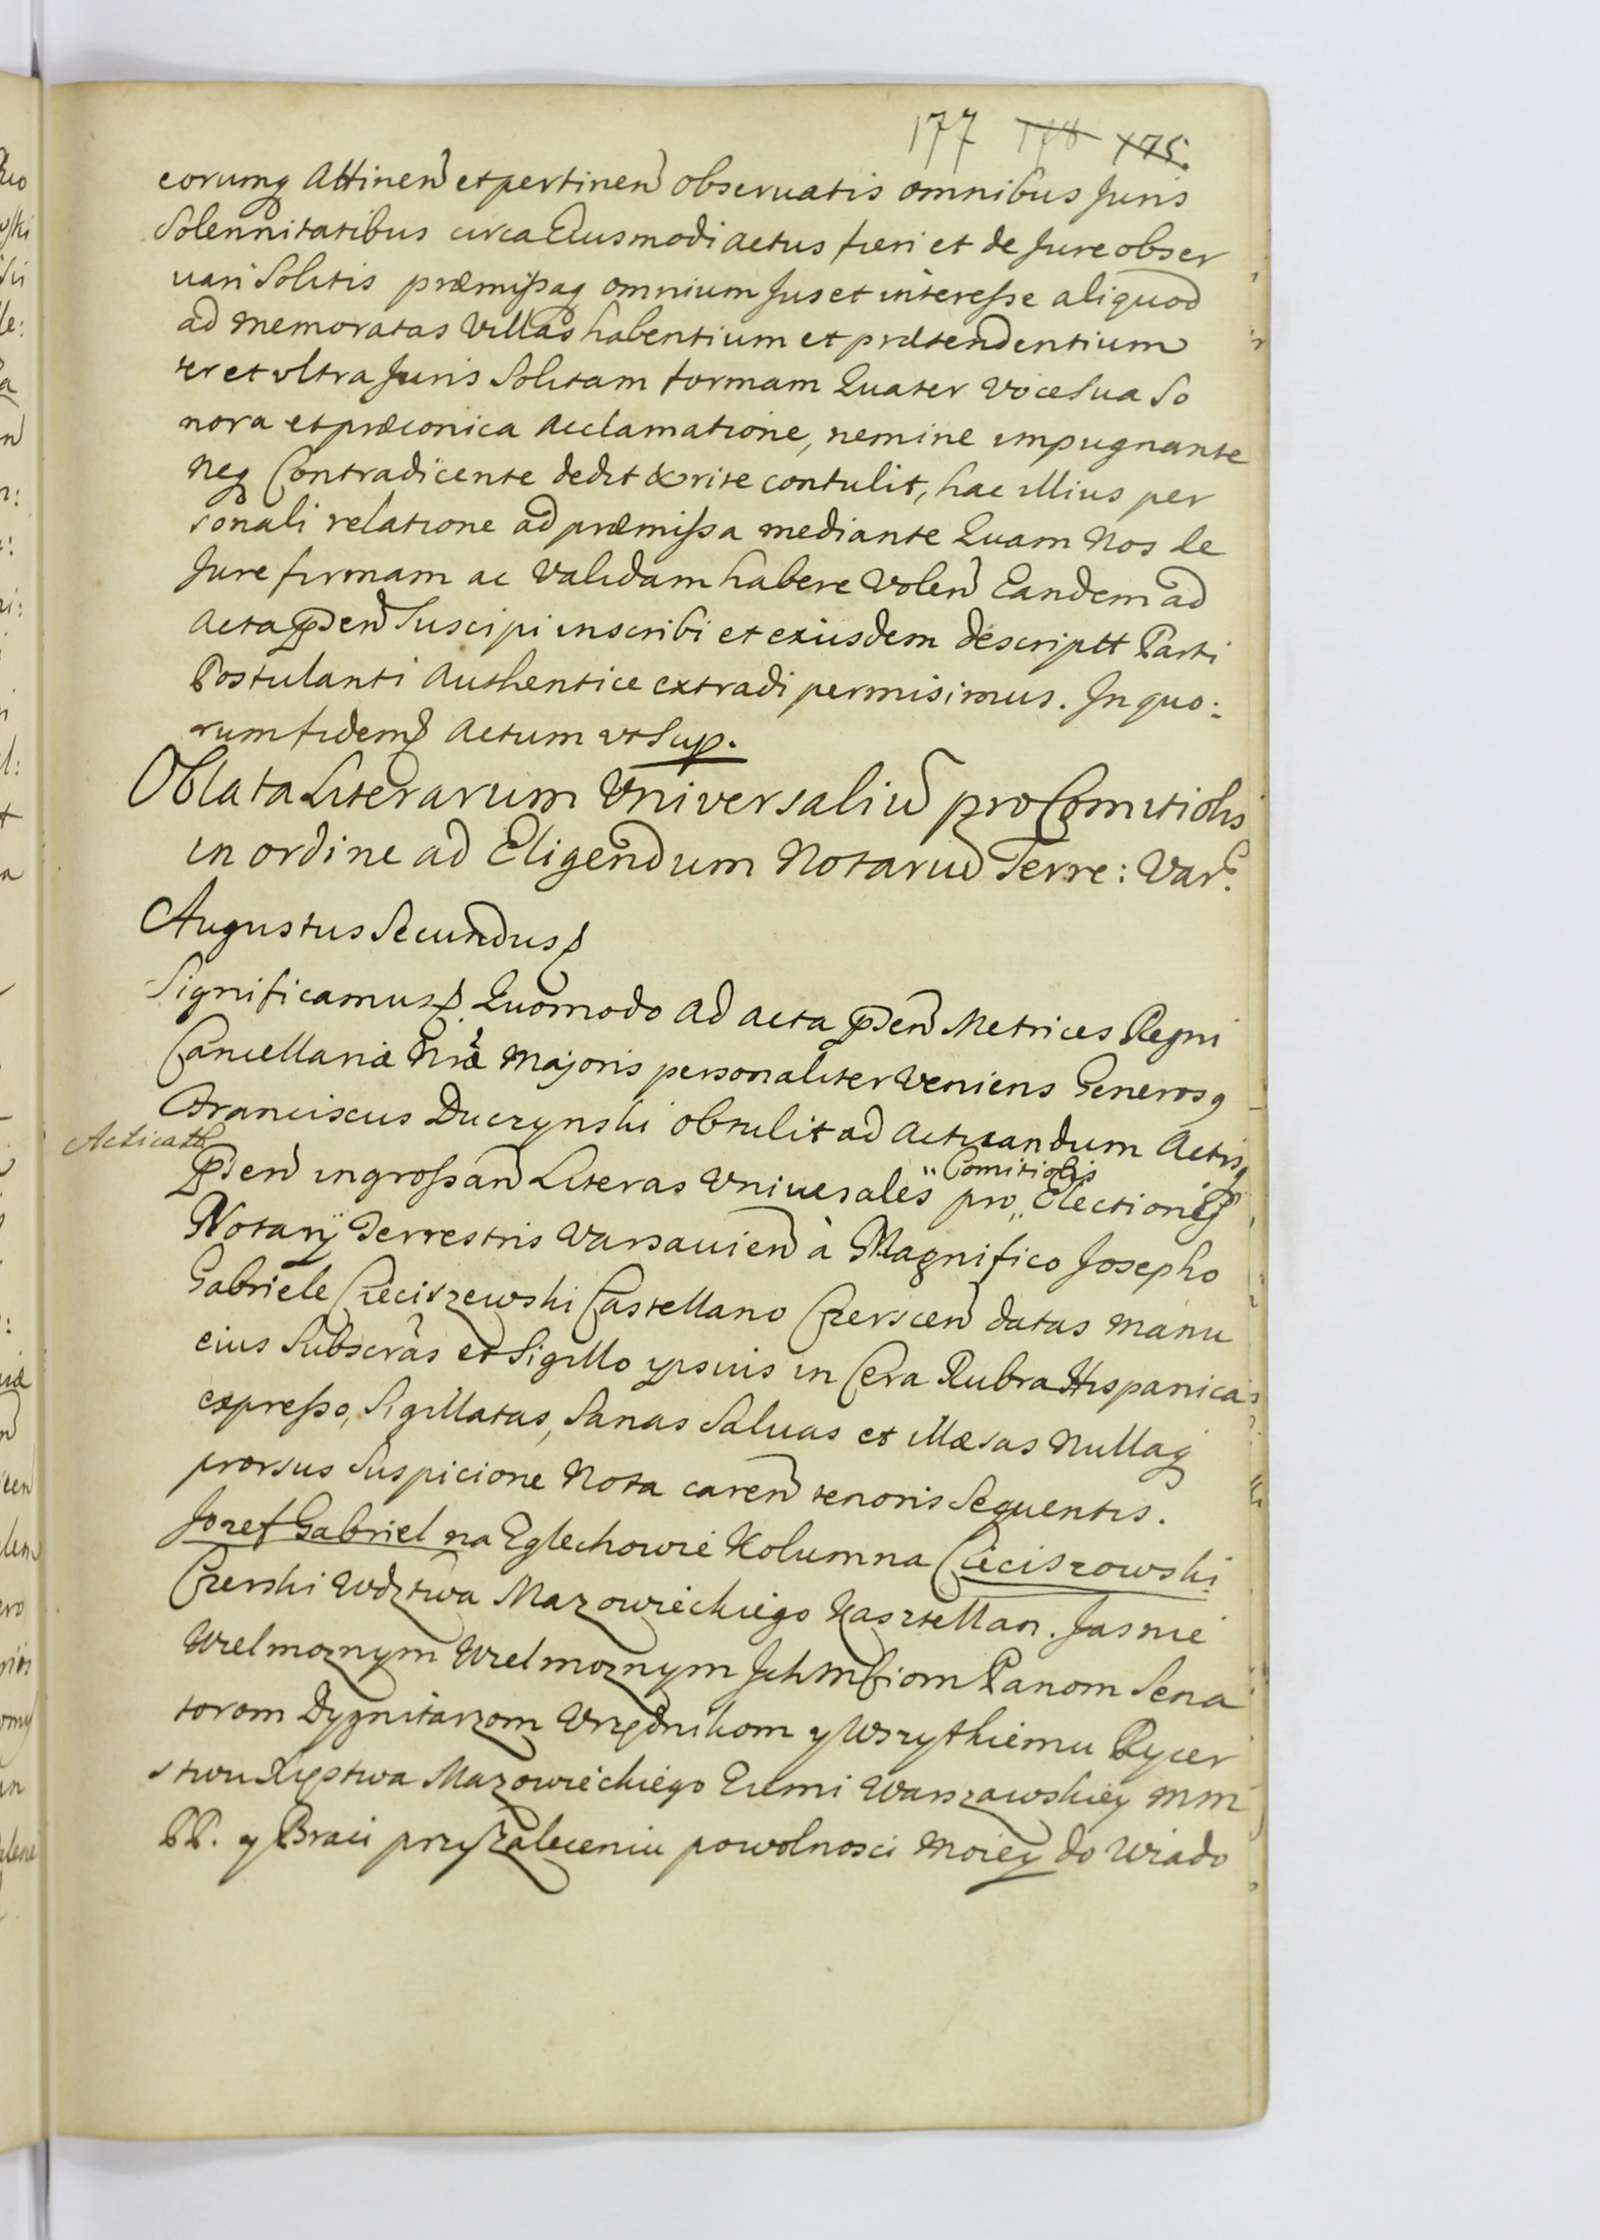 177 178 175.
eorumq Attinen et pertinen observatis omnibus Juris
Solennitatibus circa Eiusmodi actus fieri et de Jure obser
vari Solitis præmißaq omnium Jus et intereße aliquod
ad memoratas Villas habentium et prætendentium
ter et ultra Juris Solitam formam Quater Voce Sua So
nora et præconica Acclamatione, nemine impugnante
Neq Contradicente dedit & rite contulit, hac illius per
sonali relatione ad præmißa mediante Quam Nos de
Jure firmam ac Validam habere Volen Eandem ad
Acta pnden Suscipi inscribi et exiusdem descriptt Parti
Postulanti Authentice extradi permisimus. In quo:
rum fidem Actum ut Sup.
Oblata Literarum Universaliu pro Comitiolis
in ordine ad Eligendum Notariu Terre: Var.
Augustus Secundus
Significamus. Quomodo Ad acta pnden Metrices Regni
Cancellariæ Nræ Majoris personaliter Veniens Generosq
Franciscus Duczynski obtulit ad Acticandum Actisq
Acticatt
pnden ingroßan Literas Univesales pro,, Electione
,,Comitiolis
Notarÿ Terrestris Varsavien à Magnifico Josepho
Gabriele Cieciszewski Castellano Czerscen datas manu
eius Subscras et Sigillo ipsius in Cera Rubra Hispanica
expreßo, Sigillatas, Sanas Salvas et illæsas Nullaq
prorsus Suspicione Nota caren tenoris Sequentis.
Jozef Gabriel na Eglechowie Kolumna Cieciszowski
Czerski Wdztwa Mazowieckiego Kasztellan. Jasnie
Wielmoznym Wielmoznym JchMCiom Panom Sena
torom Dygnitarzom Urzędnikom y Wszytkiemu Rycer
stwu Xięstwa Mazowieckiego Ziemi Warszawskiey MM
PP. y Braci przy Zaleceniu powolnosci Moiey do Wiado